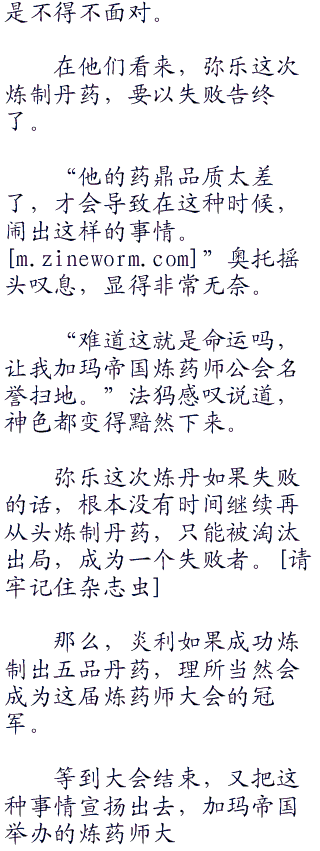 是不得不面对。
在他们看来，弥乐这次
炼制丹药，要以失败告终
了。
“他的药鼎品质太差
了，才会导致在这种时候，
闹出这样的事情。
[m.zineworm.com]”奥托摇
头叹息，显得非常无奈。
“难道这就是命运吗，
让我加玛帝国炼药师公会名
誉扫地。”法犸感叹说道，
神色都变得黯然下来。
弥乐这次炼丹如果失败
的话，根本没有时间继续再
从头炼制丹药，只能被淘汰
出局，成为一个失败者。[请
牢记住杂志虫]
那么，炎利如果成功炼
制出五品丹药，理所当然会
成为这届炼药师大会的冠
军。
等到大会结束，又把这
种事情宣扬出去，加玛帝国
举办的炼药师大